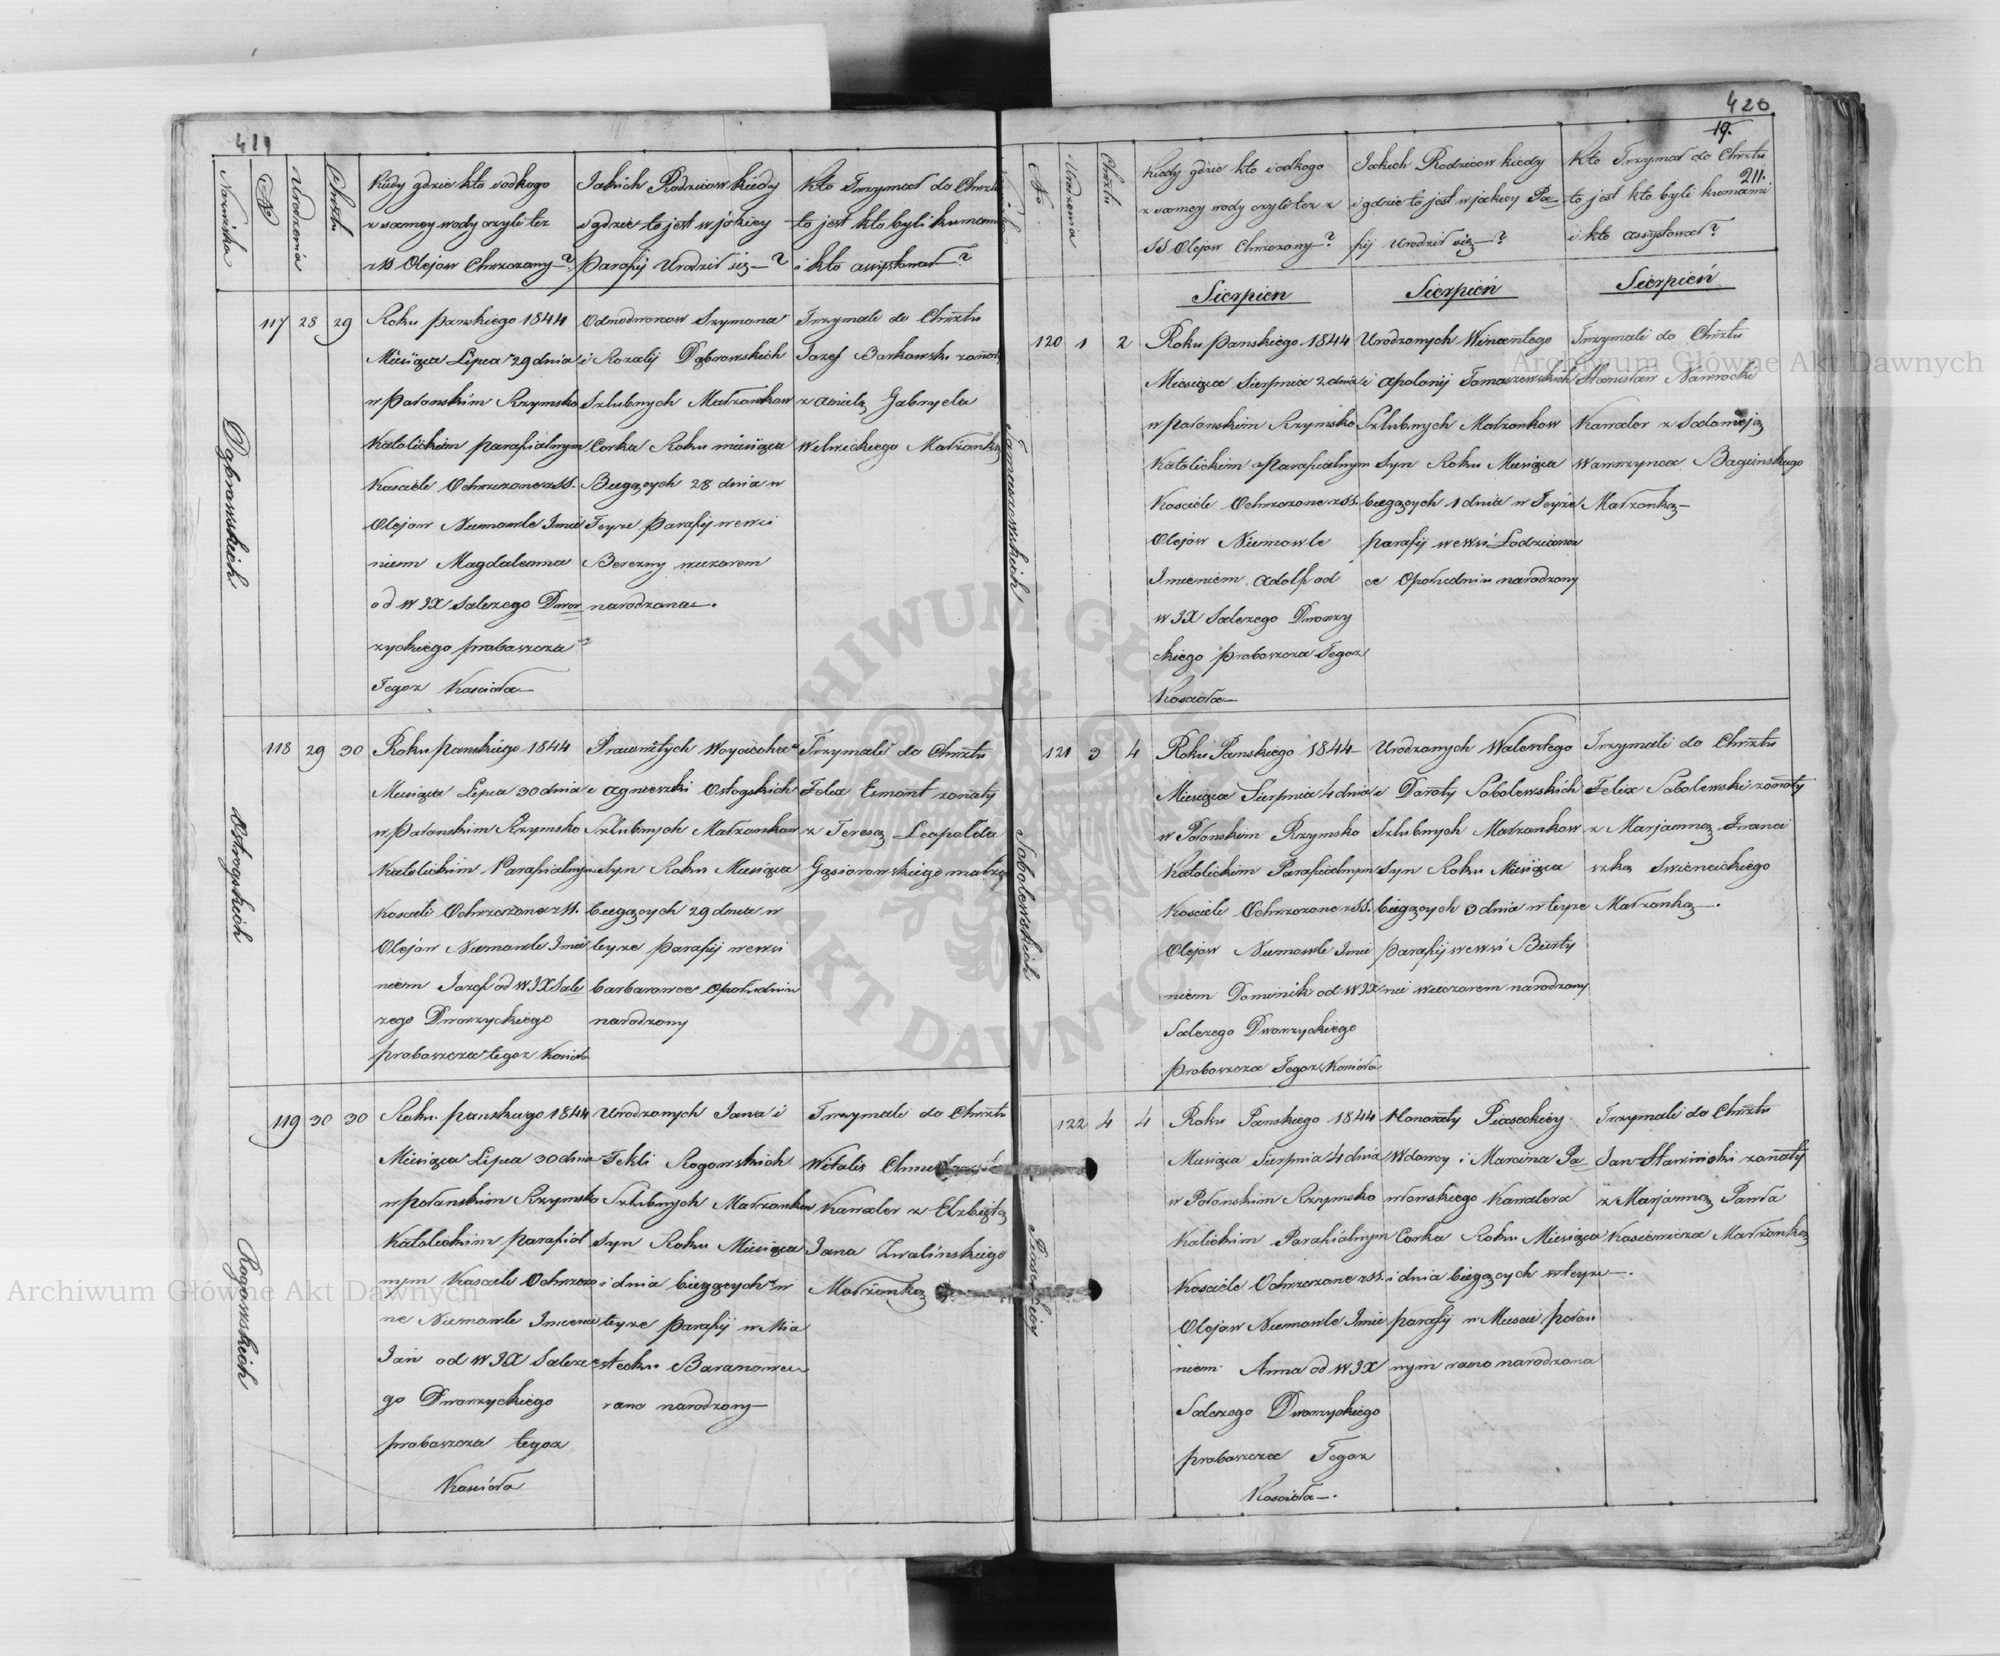 419
Nazwiska
№
Urodzenia
Chrztu
Kiedy gdzie kto i odkogo
z samey wody czyli tez
z SS Olejow Chrzczony—?
Jakich Rodzicow kiedy
i gdzie to jest w jakiey
Parafij Urodził się—?
Kto Trzymał do Chrztu
to jest kto byli kumami
i kto assystował?
Dąbrowskich
117 28 29
Roku panskiego 1844
Miesiąca Lipca 29 dnia
w Połonskim Rzymsko
Katolickim parafialnym
Kosciele Ochrzczone z SS.
Olejow Niemowle Imie
niem Magdaleona
od W JX Salezego Dwor
zyckiego proboszcza
Tegoz Kościoła—
Odnodworcow Szymona
i Rozalij Dąbrowskich
Szlubnych Małzonkow
Corka Roku miesiąca
Bieġących 28 dnia w
Teyze Parafij we wsi
Berezny wieczorem
narodzona—.
Trzymali do Chrztu
Jozef Borkowski zonaty
z Anielą Gabryela
Wilwickiego Małzonką
Ostrogskich
118 29 30
Roku panskiego 1844
Miesiąca Lipca 30 dnia
w Połonskim Rzymsko
Katolickim Parafialnym
Kosciele Ochrzczone z SS.
Olejow Niemowle Imie
niem Jozef od W JX Sale
zego Dworzyckiego
proboszcza tegoz Kosciola
Pracowitych Woyciecha
i Agnieszki Ostogskich
Szlubnych Małzonkow
Syn Roku Miesiąca
biegących 29 dnia w
teyze Parafij we wsi
barbarowce opołudniu
narodzony
Trzymali do Chrztu
Felix Esmont zonaty
z Teresą Leopolda
Gąsiorowskiego małzon
Rogowskich
119 30 30
Roku panskiego 1844
Miesiąca Lipca 30 dnia
w połonskim Rzymsko
Katolickim parafial
nym Kosciele Ochrzczo
ne Niemowle Imieniem
Jan od W JX Saleze
go Dworzyckiego
proboszcza tegoz
Kosciola
Urodzonych Jana i
Tekli Rogowskich
Szlubnych Małzonkow
Syn Roku Miesiąca
i dnia biegących w
teyze Parafij w Mia
steczku Baranowce
rano narodzony—
Trzymali do Chrztu
Witalis
Kawaler z Elzbiętą
Jana Zwalinskiego
Małzonką
420
19.
211.
No
Urodzenia
Chrztu
Kiedy gdzie kto i odkogo
z samey wody czyli tez z
SS Olejow Chrzczony?
Jakich Rodzicow kiedy
i gdzie to jest w jakiey Pa=
fij Urodził się—?
Kto Trzymał do Chrztu
to jest kto byli kumami
i kto assystował?
Sierpień
Sierpień
Sierpień
Tomaszewskich
120 1 2
Roku panskiego 1844
Miesiąca Sierpnia 2 dnia
w połonskim Rzymsko
Katolickim Parafialnym
Kosciele Ochrzczone z SS.
Olejow Niemowle
Imieniem Adolf od
W JX Salezego Dworzy
ckiego proboszcza Tegoz
Kosciola—
Urodzonych Wincentego
i Apolonij Tomaszewskich
Szlubnych Małzonkow
Syn Roku Miesiąca
biegących 1 dnia w Teyze
parafij we wsi Lodzianow
ce Opołudniu narodzony
Trzymali do Chrztu
Stanisław Nawrocki
Kawaler z Salomeją
Wawrzynca Baginskiego
Małzonką—
Sobolewskich
121 3 4
Roku Panskiego 1844
Miesiąca Sierpnia 4 dnia
w Połonskim Rzymsko
Katolickim Parafialnym
Kosciele Ochrzczone z SS.
Olejow Niemowle Imie
niem Dominik od W JX
Salezego Dworzyckiego
Proboszcza Tegoz Kosciola
Urodzonych Walentego
i Doroty Sobolewskich
Szlubnych Małzonkow
Syn Roku Miesiąca
biegących 3 dnia w teyze
parafij we wsi Burty
nie wieczorem narodzony
Trzymali do Chrztu
Felix Sobolewski zonaty
z Marjanną Franci
szka Swiencickiego
Małzonką—.
Piaseckiey
122 4 4
Roku Panskiego 1844
Miesiąca Sierpnia 4 dnia
w Połonskim Rzymsko
Kalickim Parafialnym
Kosciele Ochrzczone z SS.
Olejow Niemowle Imie
niem Anna od W JX
Salezego Dworzyckiego
proboszcza Tegoz
Kosciola—.
Honoraty Piaseckiey
Wdowy i Marcina Pa=
włowskiego Kawalera
Corka Roku Miesiąca
i dnia biegących w teyze
parafij w Miescie połon
nym rano narodzona
Trzymali do Chrztu
Jan Sławinski zonaty
z Marjanną Pawła
Kasiewicza Małzonką
—.
Archiwum Główne Akt Dawnych
Archiwum Główne Akt Dawnych
ARCHIWUM GŁÓWNE AKT DAWNYCH